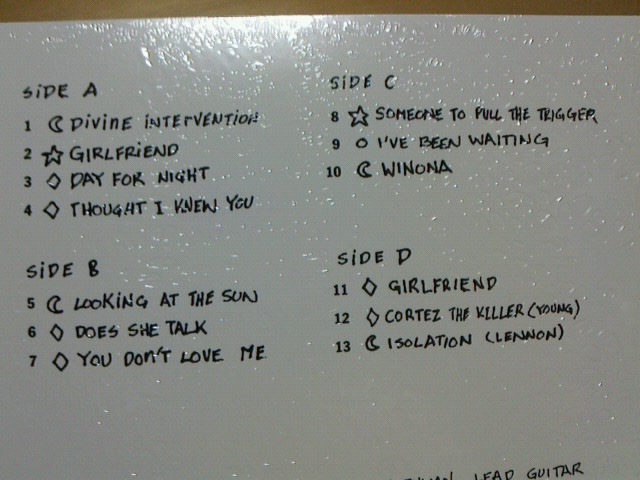 SiDE A
1 DiVine inTERVENTiON
2 GiRLFRiEND
3 DAY FOR NiGHT
4 THOUGHT I KNEW YOU
SiDE B
5 LOOKiNG AT THE SUN
6 DOES SHE TALK
7 YOU DON'T LOVE ME
SiDE C
8 SOMEONE TO PULL THE TRIGGER
9 I'VE BEEN WAITING
10 WINONA
SiDE D
11 GIRLFRIEND
12 CORTEZ THE KILLER (YOUNG)
13 ISOLATION (LENNON)
LEAD GUITAR